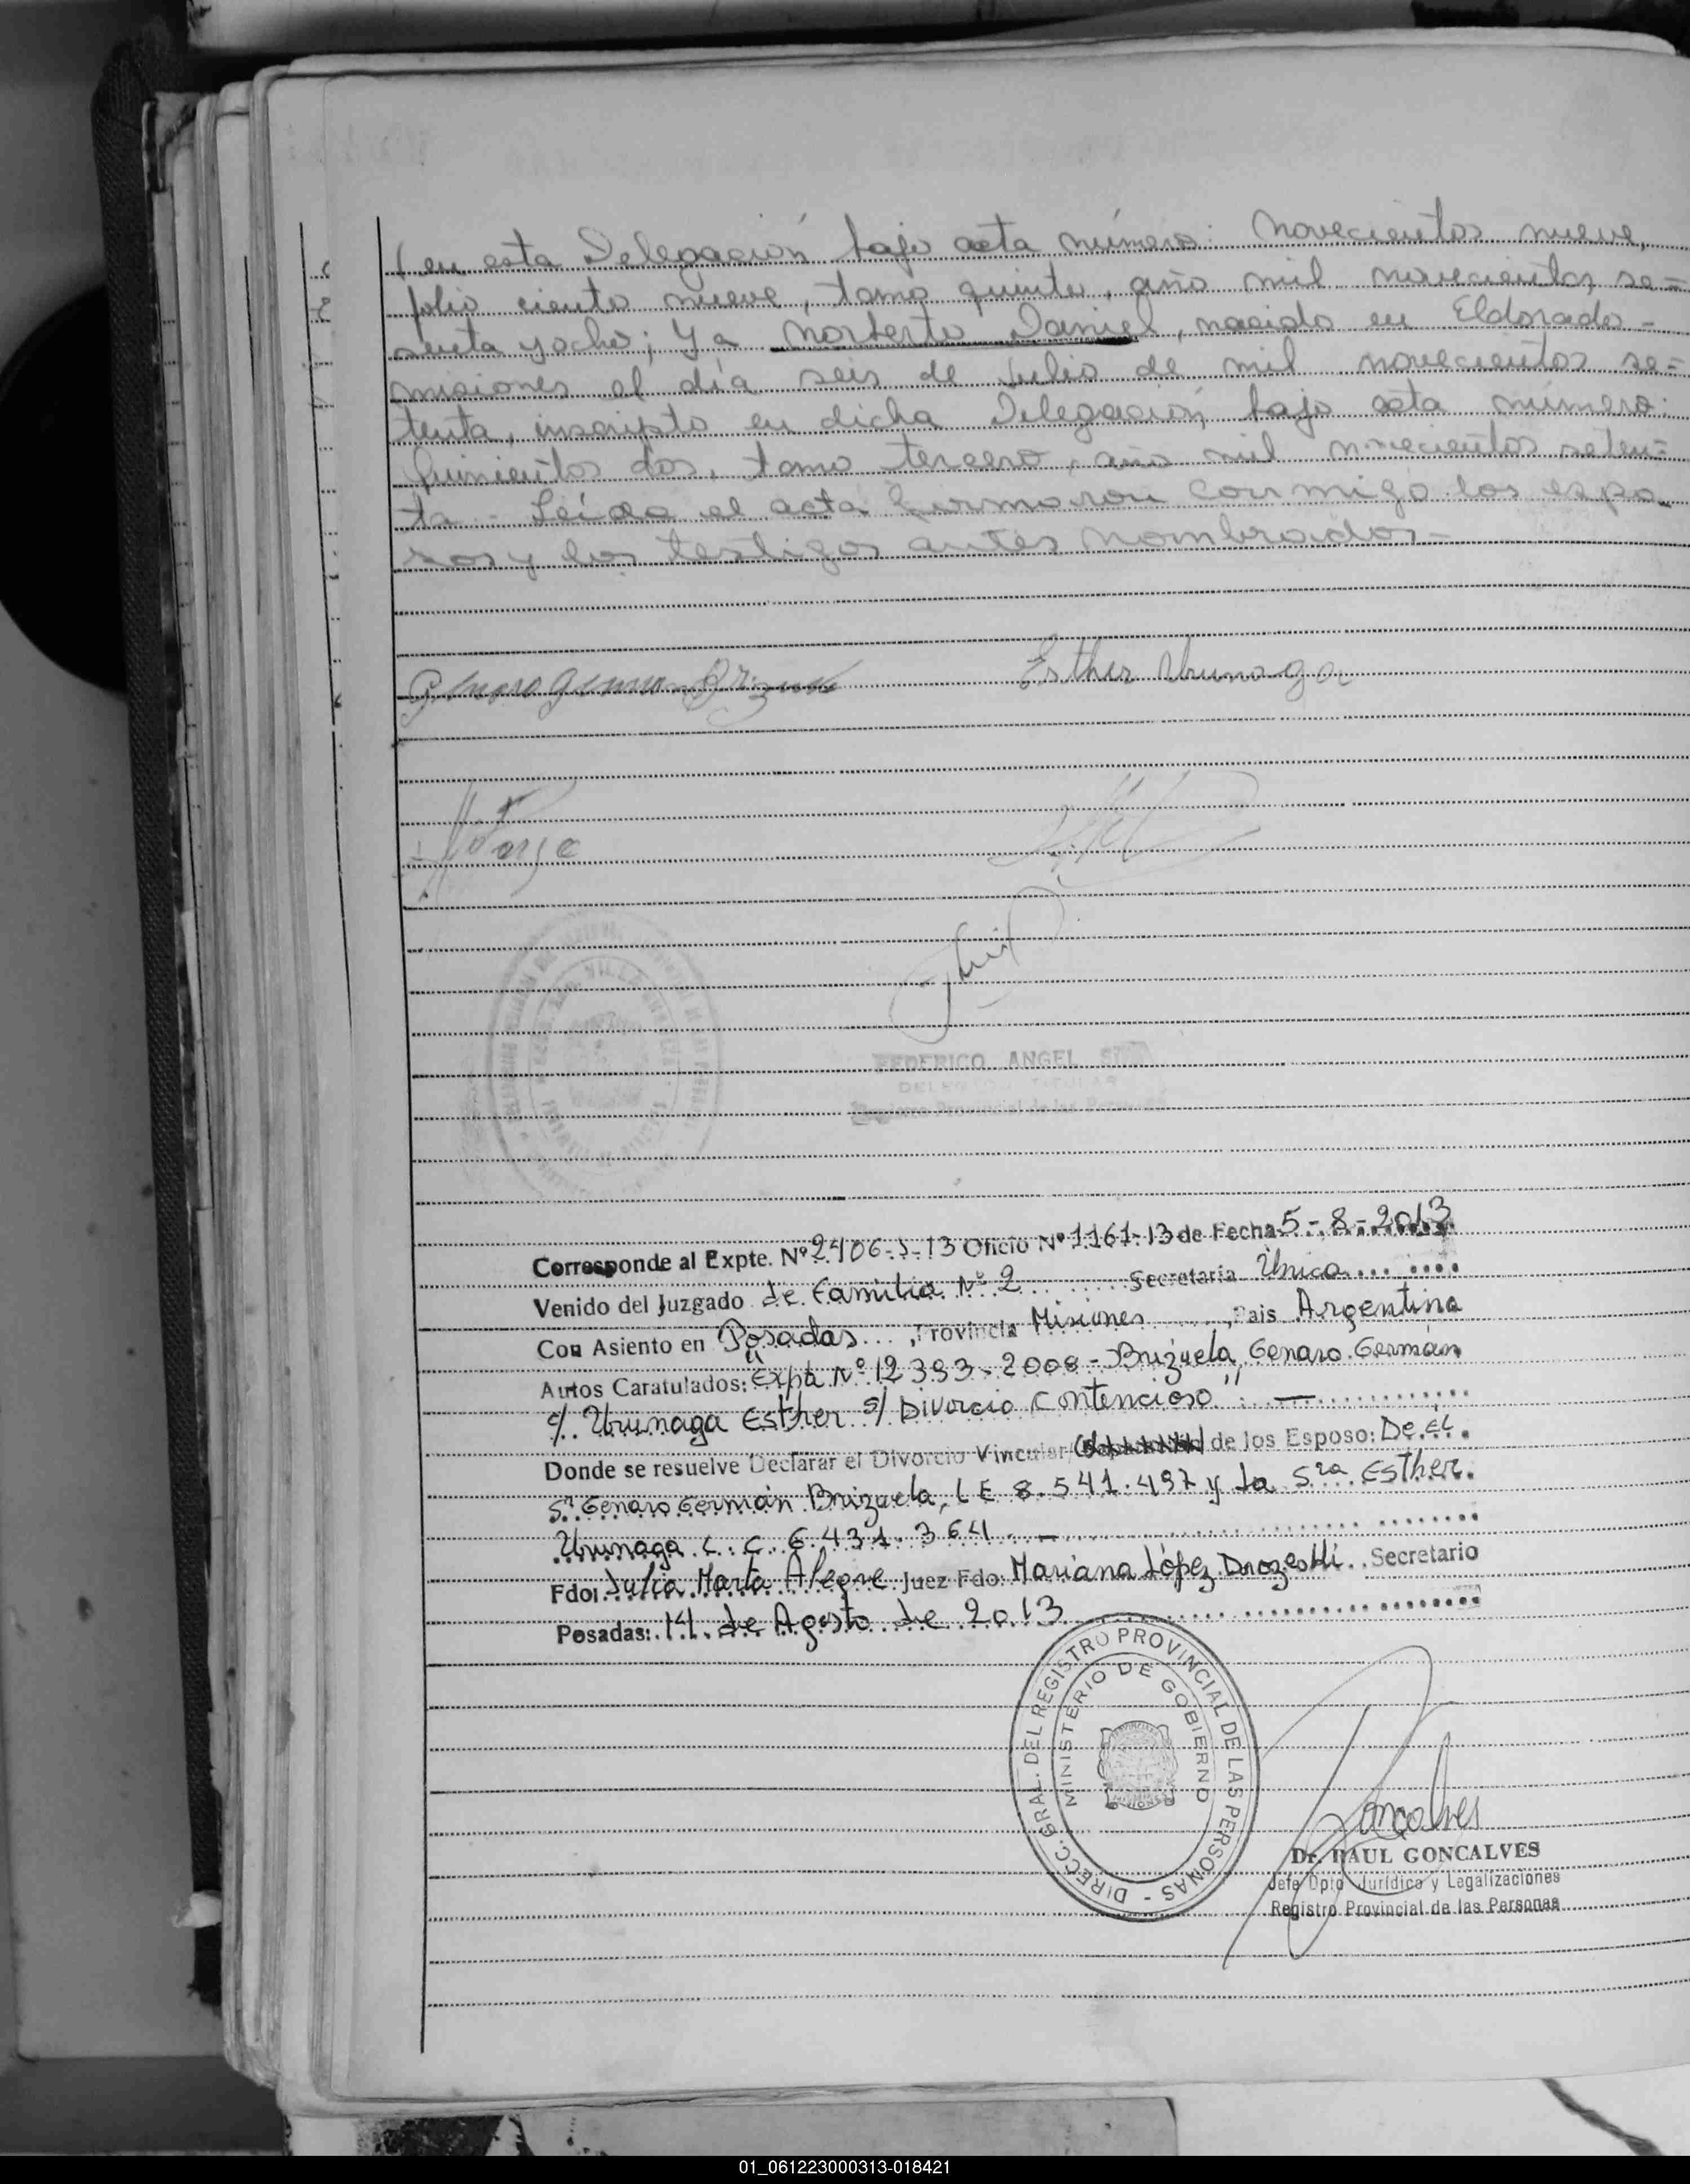 en esta Delegación bajo acta número: Novecientos nueve,
folio ciento nueve, tomo quinto, año mil novecientos se=
senta y ocho; y a Norberto Daniel, nacido en Eldorado-
misiones el día seis de Julio de mil novecientos se=
tenta, inscripto en dicha Delegación, bajo acta número:
Quinientos dos, tomo tercero, año mil novecientos seten=
ta - Leída el acta firmaron conmigo los espo-
sos y los testigos antes nombrados-
Esther Urunaga
FEDERICO ANGEL
DELEGADO TITULAR
Registro Provincial de las Personas
Corresponde al Expte. Nº 2406-J-13 Oficio Nº 1161-13 de Fecha 5-8-2013
Venido del Juzgado de Familia Nº 2 Secretaria Única
Con Asiento en Posadas, Provincia Misiones, Pais Argentina
Autos Caratulados: "Expte Nº 12393-2008 - Brizuela, Genaro Germán
c/ Urunaga Esther s/ Divorcio Contencioso"
Donde se resuelve Declarar el Divorcio Vincular de los Esposo: De El
Sr Genaro Germán Brizuela, L E 8.541.497 y La Sra Esther
Urunaga L. C. 6.431.364
Fdo: Julia Marta Alegre Juez Fdo: Mariana López Secretario
Posadas: 14 de Agosto de 2013
DIRECC. GRAL. DEL REGISTRO PROVINCIAL DE LAS PERSONAS -
MINISTERIO DE GOBIERNO
Goncalves
Dr. RAUL GONCALVES
Jefe Dpto Jurídico y Legalizaciones
Registro Provincial de las Personas
01_061223000313-018421